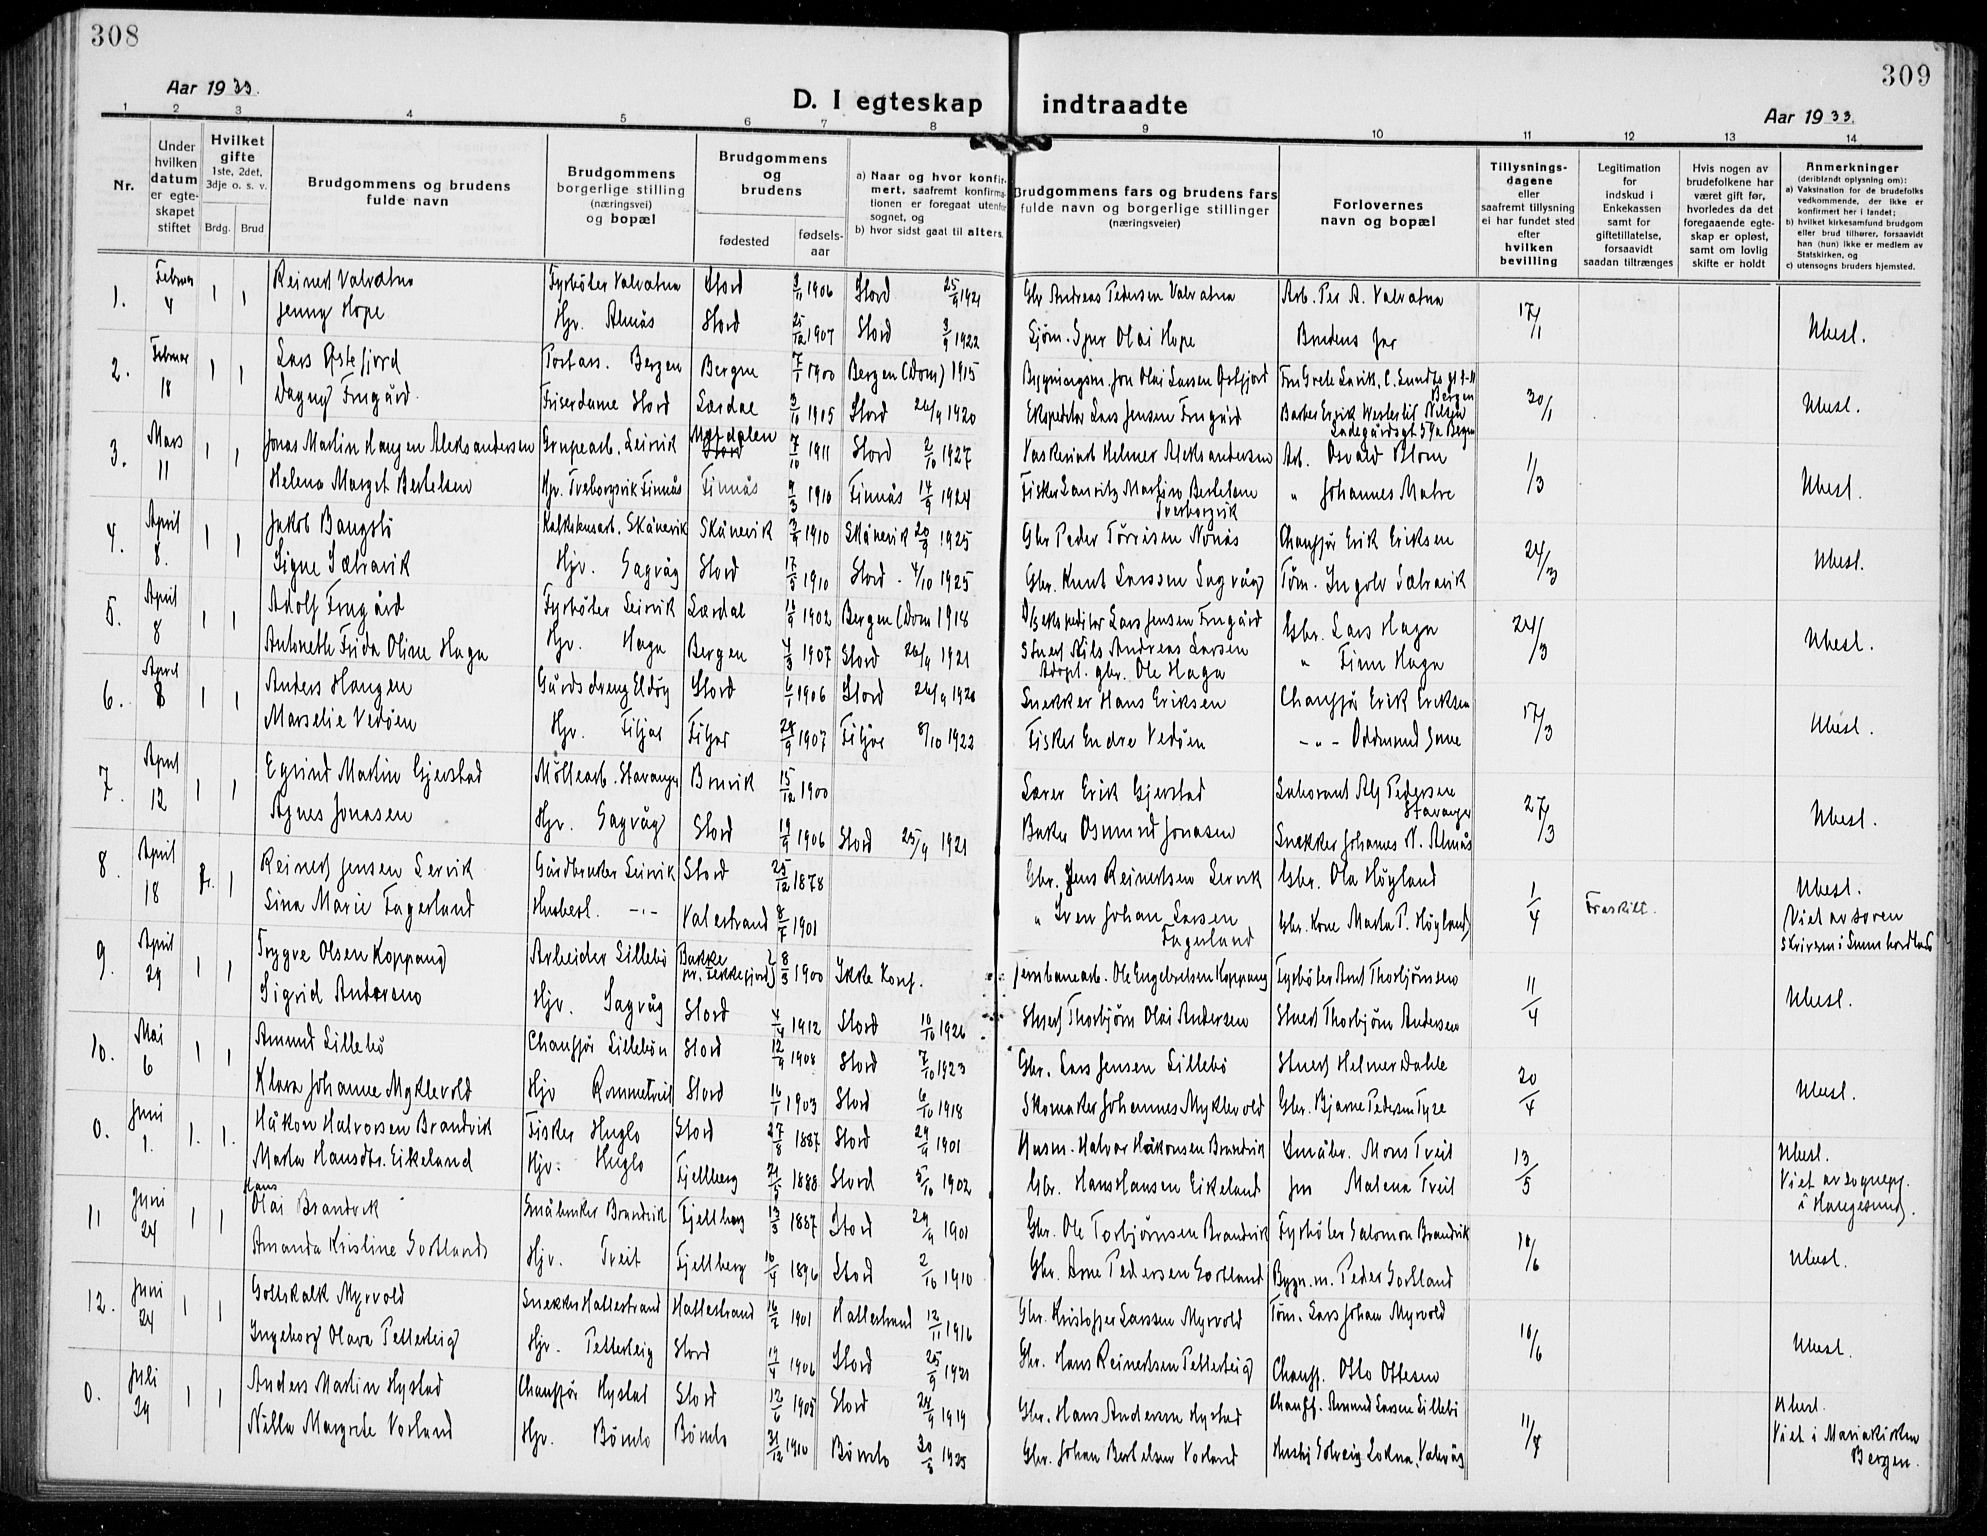 308
309
Aar 1933.
D. I egteskap indtraadte
Aar 1933.
1 2 3 4 5 6 7 8 9 10 11 12 13 14
Nr.
Under hvilken datum er egteskapet stiftet
Hvilket gifte 1ste, 2det, 3dje o. s. v.
Brdg. Brud
Brudgommens og brudens fulde navn
Brudgommens borgerlige stilling (næringsvei) og bopæl
Brudgommens og brudens
fødested
fødselsaar
a) Naar og hvor konfirmert, saafremt konfirmationen er foregaat utenfor sognet, og
b) hvor sidst gaat til alters.
Brudgommens fars og brudens fars fulde navn og borgerlige stillinger (næringsveier)
Forlovernes navn og bopæl
Tillysningsdagene eller saafremt tillysning ei har fundet sted efter hvilken bevilling
Legitimation for indskud i Enkekassen samt for giftetillatelse, forsaavidt saadan tiltrænges
Hvis nogen av brudefolkene har været gift før, hvorledes da det foregaaende egteskap er opløst, samt om lovlig skifte er holdt
Anmerkninger (deriblandt oplysning om):
a) Vaksination for de brudefolks vedkommende, der ikke er konfirmert her i landet;
b) hvilket kirkesamfund brudgom eller brud tilhører, forsaavidt han (hun) ikke er medlem av Statskirken, og
c) utensogns bruders hjemsted.
1. Februar 4 1 1 Reinert Valvatna Fyrbøter Valvatna Stord 3/11 1906 Stord 25/9 1921 Gbr Andreas Pedersen Valvatna Arb. Per A. Valvatna 17/1 Ubesl.
Jenny Hope Hjv. Almås Stord 25/12 1907 Stord 3/9 1922 Sjøm. Sjur Olai Hope Brudens far
2. Februar 18 1 1 Lars Østefjord Postass. Bergen Bergen 7/1 1900 Bergen (Dom) 1915 Bygningsm. Jon Olai Larsen Østfjord Bergen 30/1 Ubesl.
Dagny Frugård. Friserdame Stord Lærdal 3/10 1905 Stord 26/9 1920 Ekspeditør Lars Jensen Frugård Barber Nilsen
3. Mars 11 1 1 Jonas Martin Haugen Aleksandersen Grupearb. Leirvik Stord 7/10 1911 Stord 2/10 1927 Vaskeriarb Helmer Aleksandersen Arb. Osvald Blom 1/3 Ubesl.
Helena Marget Bertelsen Hjv. Tverborgvik Finnås Finnås 9/3 1910 Finnås 14/9 1924 Fisker Lauritz Martin Bertelsen " Johannes Matre
Tverborgvik
4. April 8. 1 1 Jakob Bangsli Skånevik Skånevik 3/9 1910 Skånevik 20/9 1925 Gbr Peder Tørrisen Nonås Chauffør Erik Eriksen 24/3 Ubesl.
Signe Sætravik Hjv. Sagvåg Stord 17/5 1910 Stord. 4/10 1925 Gbr. Knut Larssen Sagvåg Tøm. Ingolv Sætravik
5. April 8 1 1 Adolf Frugård Fyrbøter Leirvik Lærdal 1902 Bergen (Dom 1918 Lars Jensen Frugård Gbr. Lars Haga 24/3 Ubesl.
Antoneth Frida Oline Haga Hjv. Haga Bergen 4/3 1907 Stord 26/9 1921 Stuert Nils Andreas Larsen " Finn Haga
Adopt. gbr. Ole Haga
6. April 8 1 1 Anders Haugen Gårdsdreng Eldøy Stord 6/1 1906 Stord 26/9 1920 Snekker Hans Eriksen Chauffør Erik Eriksen 17/3 Ubesl.
Marselie Vedøen Hjv. Fitjar Fitjar 28/9 1907 Fitjar 8/10 1922 Fisker Endre Vedøen -"- Oddmund
7. April 12 1 1 Egvind Martin Gjerstad Møllearb. Stavanger Bruvik 15/12 1900 Lærer Erik Gjerstad Laborant Alf Pedersen 27/3 Ubesl.
Stavanger
Agnes Jonasen Hjv. Sagvåg Stord 19/9 1906 Stord 25/9 1921 Baker Osmund Jonasen Snekker Johannes N. Almås
8. April 18 1 Reinert Jensen Lervik Gårdbruker Leirvik Stord 25/12 1878 Gbr. Jens Reinertsen Lervik Gbr. Ola Høyland 1/4 Fraskilt. Ubesl.
Lina Marie Fagerland Husbest. -"- Valestrand 8/7 1901 " Sven Johan Larsen Gbr. Kone Marta P. Høyland Viet av soren
Fagerland skriveren i Sunnhordland
9. April 29 1 1 Trygve Olsen Koppang Arbeider Lillebø Bakke pr. Flekkefjord 8/3 1900 Ikke konf. Jernbanearb. Ole Engebretsen Koppang Fyrbøter Arnt Thorbjørnsen 11/4 Ubesl.
Sigrid Andersen Hjv. Sagvåg Stord 4/4 1912 Stord 10/10 1926 Stuert Thorbjørn Olai Andersen Stuert Thorbjørn Andersen
10. Mai 6 1 1 Amund Lillebø Chauffør Lillebøn Stord 12/9 1908 Stord 7/10 1923 Gbr. Lars Jensen Lillebø Stuert Helmer Dahle 20/4 Ubesl.
Klara Johanne Myklevold Hjv Rommetveit Stord 16/1 1903 Stord 6/10 1918 Skomaker Johannes Myklevold Gbr. Bjarne Pedersen Tyse
0. Juni 1. 1. 1. Håkon Halvorsen Brandvik Fisker Huglo Stord 27/8 1887 Stord 29/9 1901 Husm. Halvor Håkonsen Brandvik Småbr. Mons Tveit 13/5 Ubesl.
Marta Hansdtr. Eikeland Hjv. Huglo Fjellberg 21/5 1888 Stord 5/10 1902 Gbr. Hans Hansen Eikeland fru Malena Tveit Viet av sognepr.
i Haugesund.
11 Juni 24 1 1 Hans Olai Brandvik Småbruker Brandvik Fjellberg 13/3 1887 Stord 29/9 1901 Gbr. Ole Torbjørnsen Brandvik Fyrbøter Salomon Brandvik 10/6 Ubesl.
Amanda Kristine Sortland Hjv. Tveit Fjellberg 10/4 1896 Stord 2/10 1910 Gbr. Arne Pedersen Sortland Bygn.m. Peder Sortland
12. Juni 24 1 1 Gottskalk Myrvold Snekker Hattestrand Hattestrand 16/2 1901 Hattestrand 12/11 1916 Gbr. Kristoffer Larssen Myrvold Tøm. Lars Johan Myrvold 10/6 Ubesl.
Ingeborg Olava Petterteig Hjv. Petterteig Stord 19/4 1906 Stord 25/9 1921 Gbr. Hans Reinertsen Petterteig Chauff. Otto Ottesen
0. Juli 29 1 1 Anders Martin Hystad Chauffør Hystad Stord 12/6 1905 Stord 28/9 1919 Gbr. Hans Andersen Hystad Chauff. Amund Larsen Lillebø 11/7 Ubesl.
Nilla Margrete Vorland Hjv. Bømlo Bømlo 31/12 1910 Bømlo 30/8 1925 Gbr. Johan Bertelsen Vorland Solveig Valvåg Viet i Mariakirken
Bergen.